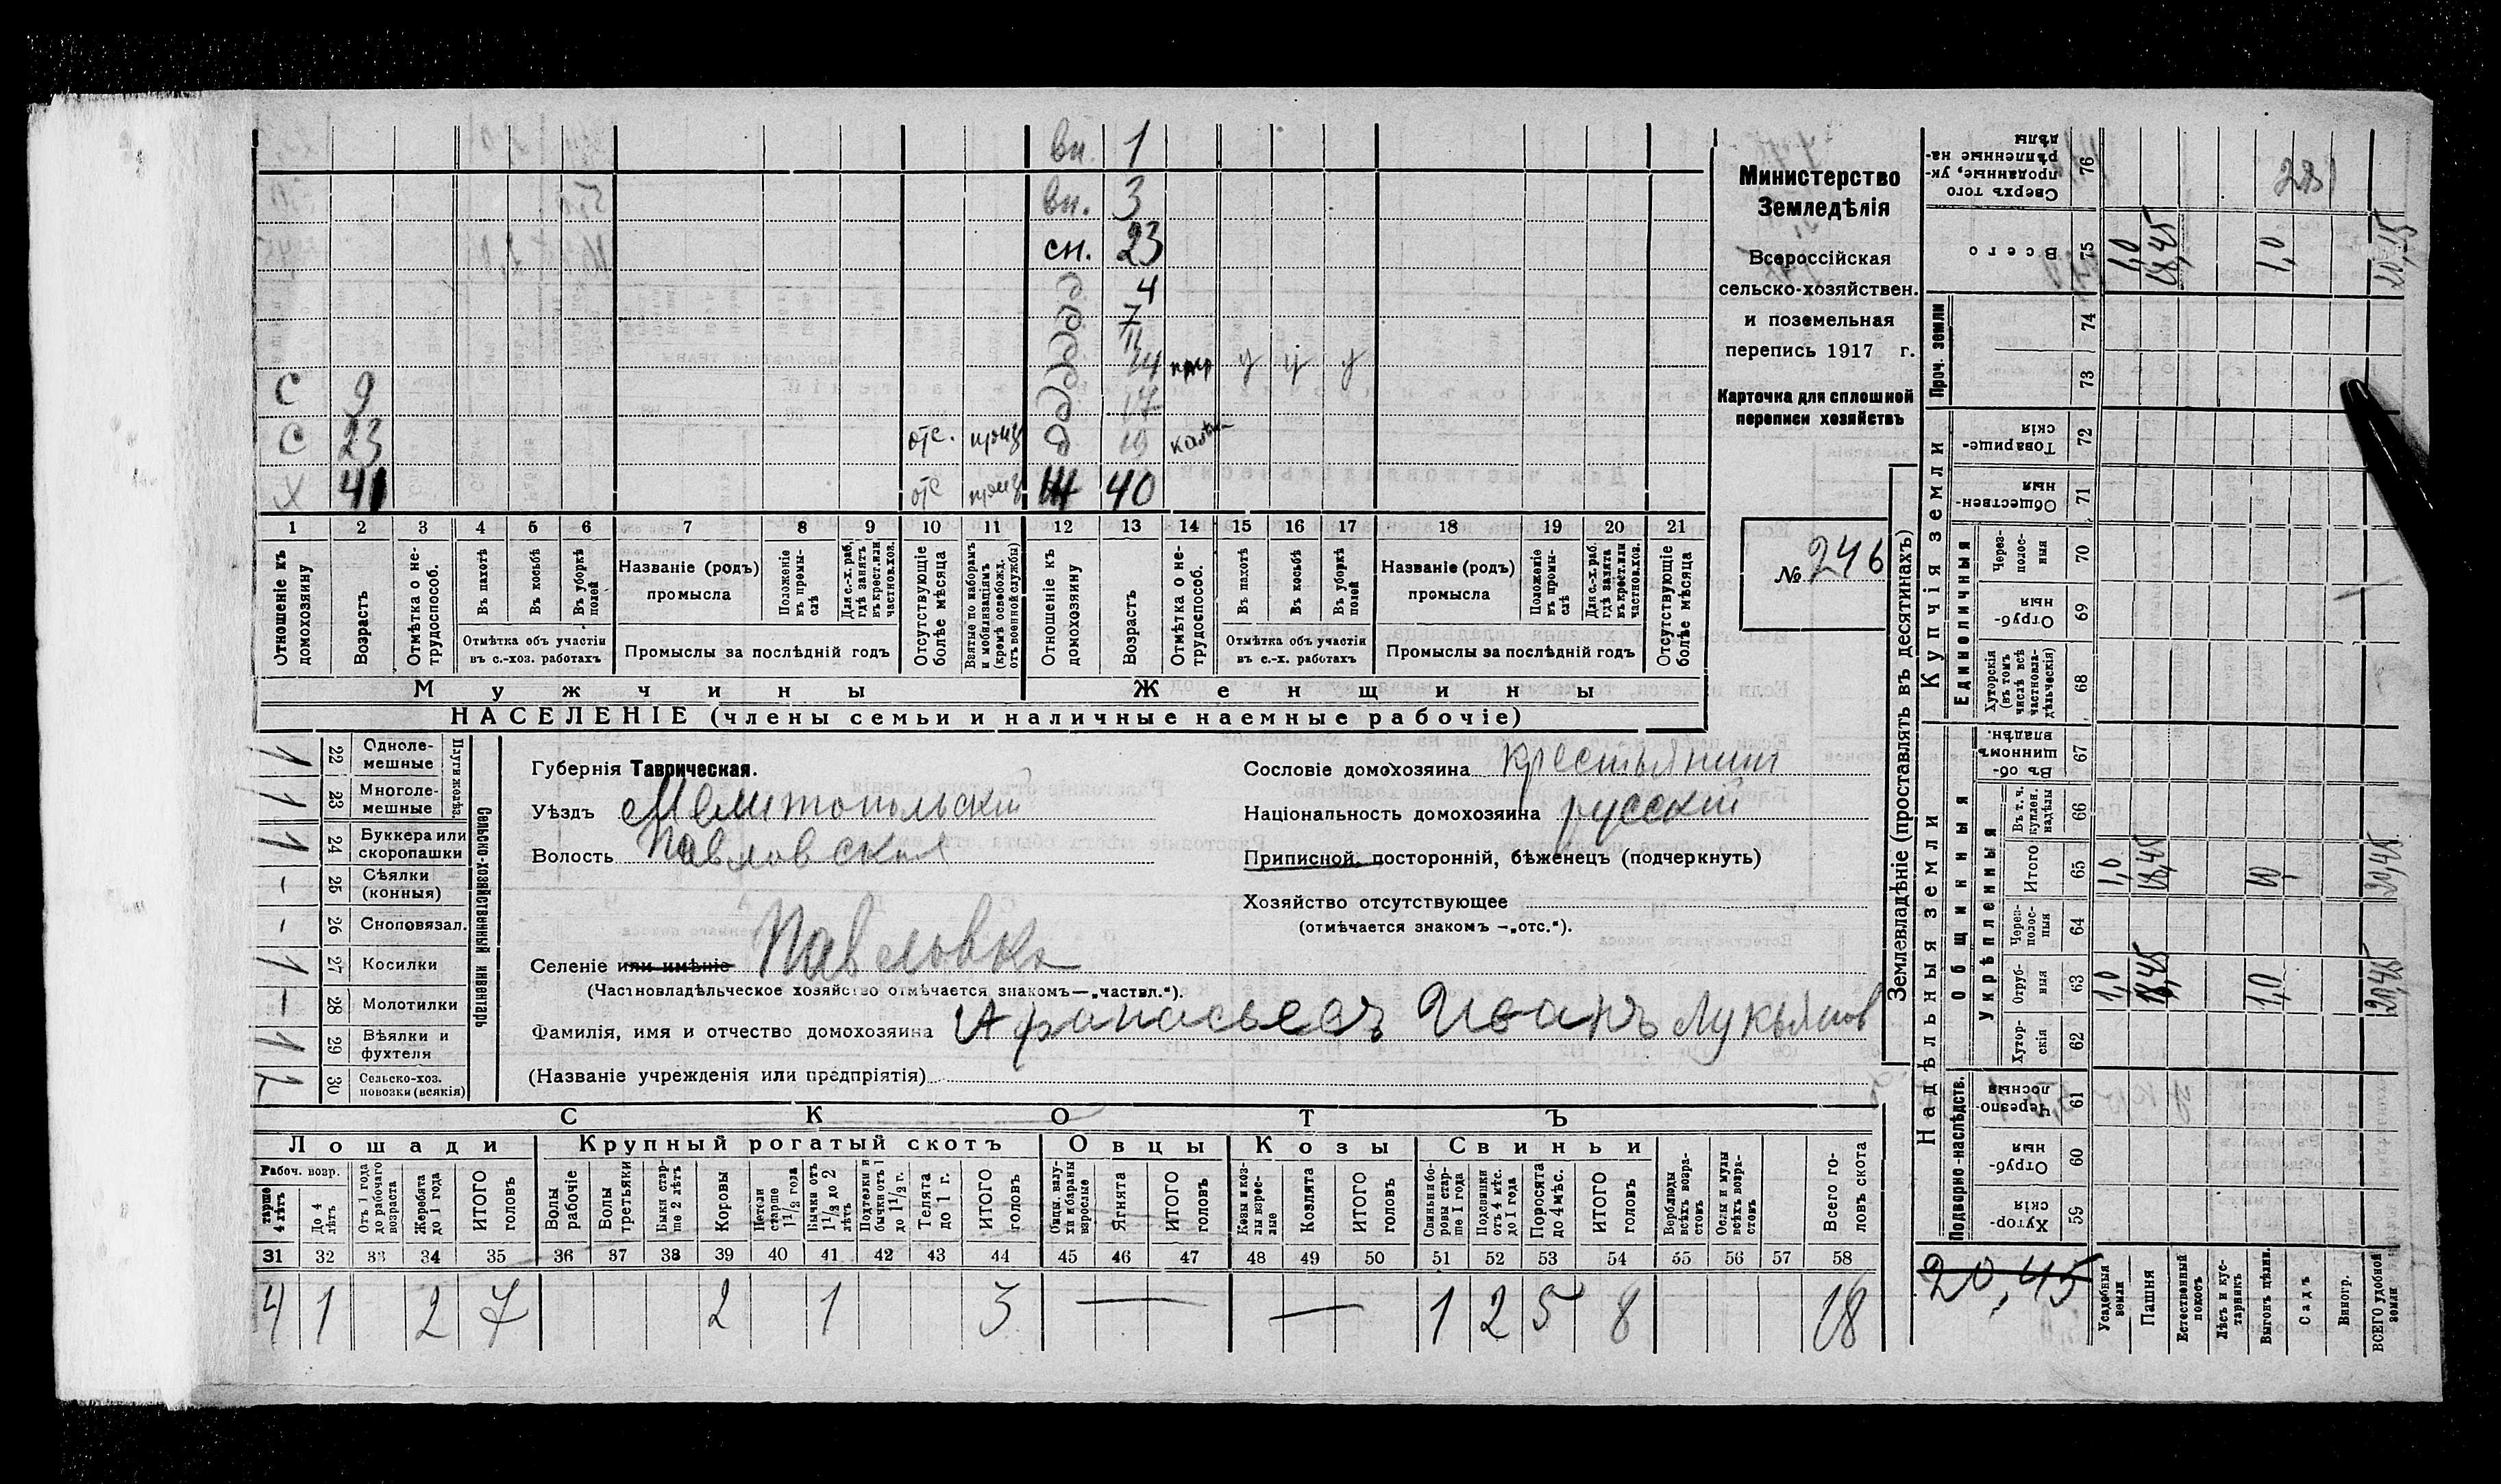 вн. 1
вн. 3
сн. 23
д 4
д 7
д 11
д 14 у у у
С 9 д 17
С 23 отс. д 19
Х 41 отс Ж 40
1 2 3 4 5 6 7 8 9 10 11 12 13 14 15 16 17 18 19 20 21
Отношеніе къ домохозяину
Возрастъ
Отмѣтка о не-трудоспособ.
Въ пахотѣ
Въ косьбѣ
Въ уборкѣ полей
Отмѣтка объ участіи
въ с.-хоз. работахъ
Названіе (родъ)
промысла
Положеніе въ промы-слѣ
Для с.-х. раб. гдѣ занятъ въ крест. или частнов. хоз.
Промыслы за послѣдній годъ
Отсутствующіе болѣе мѣсяца
Взятые по наборамъ и мобилизаціямъ (кромѣ освобожд. отъ военной службы)
Отношеніе къ домохозяину
Возрастъ
Отмѣтка о не-трудоспособ.
Въ пахотѣ
Въ косьбѣ
Въ уборкѣ полей
Отмѣтка объ участіи
въ с.-х. работахъ
Названіе (родъ)
промысла
Положеніе въ промы-слѣ
Для с.-х. раб. гдѣ занята въ крест. или частнов. хоз.
Промыслы за послѣдній годъ
Отсутствующіе болѣе мѣсяца
Мужчины Женщины
НАСЕЛЕНІЕ (члены семьи и наличные наемные рабочіе)
Министерство
Земледѣлія
Всероссійская
сельско-хозяйствен.
и поземельная
перепись 1917 г.
Карточка для сплошной
переписи хозяйствъ
№ 246
Сельско-хозяйственный инвентарь
Плуги желѣз.
1 22 Одноле-мешные
1 23 Многоле-мешные
1 24 Буккера или скоропашки
- 25 Сѣялки (конные)
- 26 Сноповязал.
1 27 Косилки
- 28 Молотилки
1 29 Вѣялки и фухтеля
30 Сельско-хоз. повозки (всякія)
Губернія Таврическая.
Уѣздъ Мелитопольскій
Волость Павловская
Селеніе или имѣніе Павловка
(Частновладѣльческое хозяйство отмѣчается знакомъ—„частвл.“).
Фамилія, имя и отчество домохозяина Афанасьевъ Иванъ Лукьянов
(Названіе учрежденія или предпріятія)
Сословіе домохозяина крестьянин
Національность домохозяина русскій
Приписной, посторонній, бѣженецъ (подчеркнуть)
Хозяйство отсутствующее
(отмѣчается знакомъ —„отс.“).
СКОТЪ
Лошади Крупный рогатый скотъ Овцы Козы Свиньи
Рабоч. возр.
старше 4 лѣтъ
До 4 лѣтъ
Отъ 1 года до рабочаго возраста
Жеребята до 1 года
ИТОГО головъ
Волы рабочіе
Волы третьяки
Быки стар-ше 2 лѣтъ
Коровы
Нетели старше 1½ года
Бычки отъ 1½ до 2 лѣтъ
Подтелки и бычки отъ 1 до 1½ г.
Телята до 1 г.
ИТОГО головъ
Овцы, валу-хи и бараны взрослые
Ягнята
ИТОГО головъ
Козы и коз-лы взрос-лые
Козлята
ИТОГО головъ
Свиньи и бо-ровы стар-ше 1 года
Подсвинки отъ 4 мѣс. до 1 года
Поросята до 4 мѣс.
ИТОГО головъ
Верблюды всѣхъ возра-стовъ
Ослы и мулы всѣхъ возра-стовъ
Всего го-ловъ скота
31 32 33 34 35 36 37 38 39 40 41 42 43 44 45 46 47 48 49 50 51 52 53 54 55 56 57 58
4 1 2 7 2 1 3 — — 1 2 5 8 18
Землевладѣніе (проставлять въ десятинахъ)
Надѣльныя земли Купчія земли Проч. земли
Подворно-наслѣдств.
Общинныя
Укрѣпленныя
Единоличныя
Хутор-скія 59
Отруб-ныя 60
Черезпо-лосныя 61
Хутор-скія 62
Отруб-ныя 63 1,0 18,45 1,0 20,45
Черес-полос-ныя 64
Итого 65 1,0 18,45 1,0 20,45
Въ т. ч. куплен. надѣлы 66
Въ об-щинномъ владѣн. 67
Хуторскія (въ томъ числѣ всѣ частновла-дѣльческія) 68
Отруб-ныя 69
Черес-полос-ныя 70
Обществен-ныя 71
Товарище-скія 72
73
74
Всего 75 1,0 18,45 1,0 20,45
Сверхъ того проданные, ук-рѣпленные на-дѣлы 76
20,45
Усадебныя земли
Пашня
Естественный покосъ
Лѣсъ и кус-тарникъ
Выгонъ цѣлин.
Садъ
Виногр.
ВСЕГО удобной земли